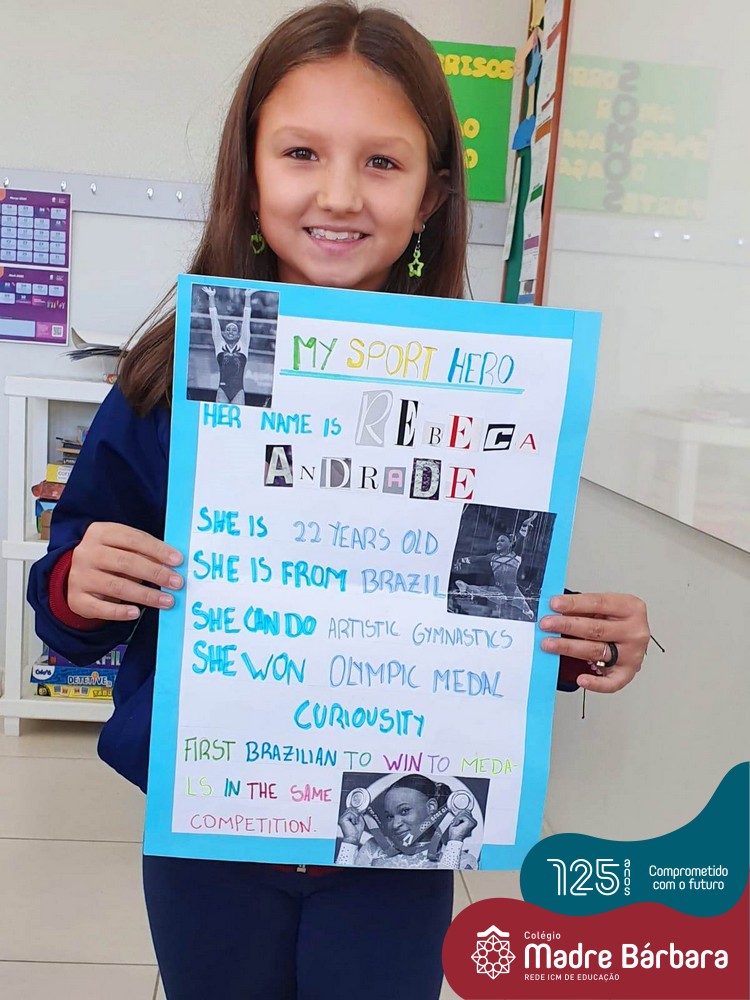 RISOS
MY SPORT HERO
HER NAME IS REBECA
ANDRADE
SHE IS 22 YEARS OLD
SHE IS FROM BRAZIL
SHE CAN DO ARTISTIC GYMNASTICS
SHE WON OLYMPIC MEDAL
CURIOUSITY
FIRST BRAZILIAN TO WIN TO MEDA-
LS IN THE SAME
COMPETITION.
DETETIVE
125 anos
Comprometido
com o futuro
Colégio
Madre Bárbara
REDE ICM DE EDUCAÇÃO